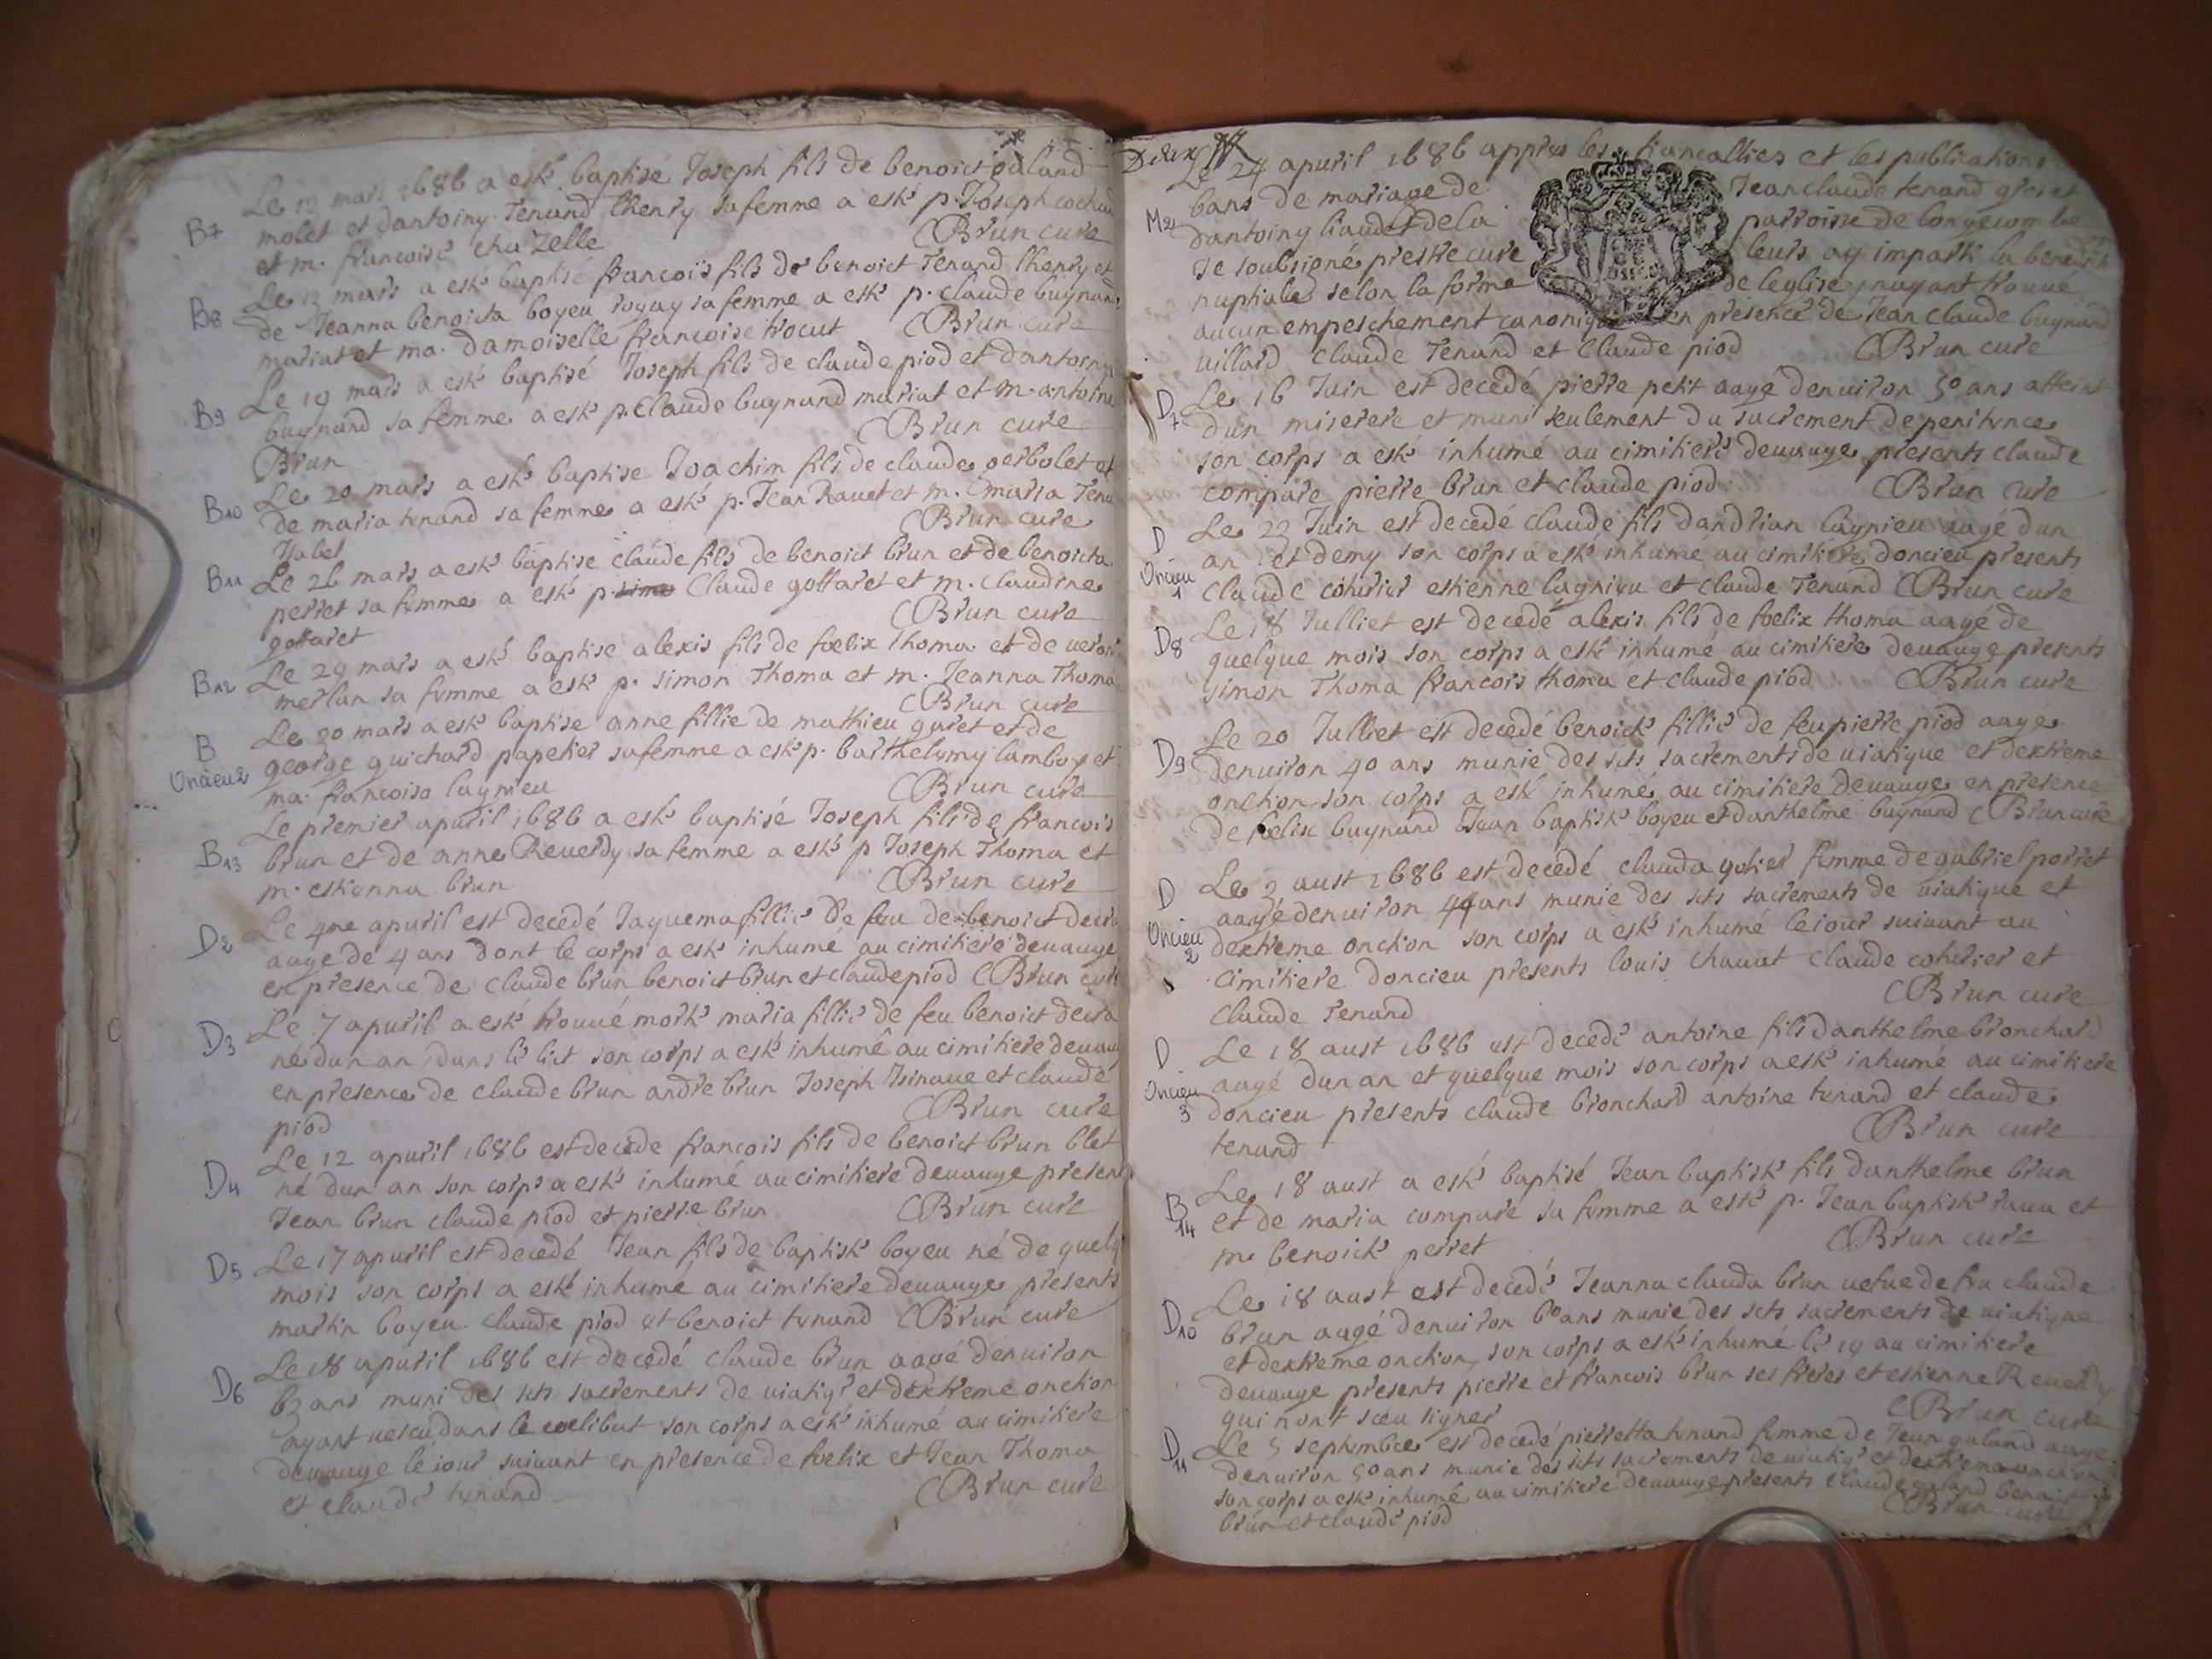 B7
Le 13 mars 1686 a esté baptisé Joseph fils de benoict galand
molet et dantoiny Tenand lhenry sa femme a esté p. Joseph
et m. francoise chaZelle Brun curé
B8
Le 13 mars a esté baptisé francois fils de benoict Tenand lhenry et
de Jeanna benoicta boyeu rogay sa femme a esté p. claude buynand
mariat et ma. damoiselle francoise trocut Brun curé
B9
Le 19 mars a esté baptisé Joseph fils de claude piod et dantoiny
buynand sa femme a esté p. Claude buynand mariat et m. antoine
Brun Brun curé
B10
Le 20 mars a esté baptisé Joachim fils de claude et
de maria tenand sa femme a esté p. Jean Rauet et m. maria
Isabel Brun curé
B11
Le 26 mars a esté baptisé claude fils de benoict brun et de benoicta
perret sa femme a esté p. Claude gottaret et m. claudine
gottaret Brun curé
B12
Le 29 mars a esté baptisé alexis fils de foelix thoma et de
merlan sa femme a esté p. simon Thoma et m. Jeanna Thoma
Brun curé
B Oncieu 2
Le 30 mars a esté baptisé anne fillie de mathieu garet et de
george guichard papetier sa femme a esté p. barthelemy lamboy et
ma. francoisa lagnieu Brun curé
B13
Le premier apuril 1686 a esté baptisé Joseph fils de francois
brun et de anne Reuerdy sa femme a esté p Joseph Thoma et
m. estienna brun Brun curé
D2
Le 4me apuril est decedé Jaquema fillie de feu de benoict
aage de 4 ans dont le corps a esté inhumé au cimitiere deuauge
en presence de claude brun benoict brun et claude piod Brun curé
D3
Le 7 apuril a esté trouué morte maria fillie de feu benoict
né dun an dans le lict son corps a esté inhumé au cimitiere
en presence de claude brun andre brun Joseph et claude
piod Brun curé
D4
Le 12 apuril 1686 est decedé francois fils de benoict brun blet
né dun an son corps a esté inhumé au cimitiere deuauge present
Jean brun claude piod et pierre brun Brun curé
D5
Le 17 apuril est decedé Jean fils de baptiste boyeu né de quelq
mois son corps a esté inhumé au cimitiere deuauge presents
martin boyeu claude piod et benoict tenand Brun curé
D6
Le 18 apuril 1686 est decedé claude brun aagé denuiron
63 ans muni des scts sacrements de uiatiqe et dextreme onction
ayant uescu dans le coelibat son corps a esté inhumé au cimitiere
deuauge le iour suiuant en presence de foelix et Jean Thoma
et claude tenand Brun curé
Deux
M2
Le 24 apuril 1686 appres les fiancallies et les publications
bans de mariage de Jean claude tenand gros et
dantoiny liaudet dela parroisse de longecombe
Je soubsigné prestre curé leurs ay imparti la
nuptiale selon la forme de leglise nayant trouué
aucun empeschement canonique en presence de Jean claude buynand
uillard claude Tenand et claude piod Brun curé
D7
Le 16 Juin est decedé pierre petit aagé denuiron 50 ans atteint
dun miserere et muni seulement du sacrement de penitence
son corps a esté inhumé au cimitiere deuauge presents claude
compare pierre brun et claude piod Brun curé
D Oncieu 1
Le 23 Juin est decedé claude fils dandrian lagnieu aagé dun
an et demy son corps a esté inhumé au cimitiere doncieu presents
claude cohurier estienne lagnieu et claude Tenand Brun curé
D8
Le 18 Julliet est decedé alexis fils de foelix thoma aagé de
quelque mois son corps a esté inhumé au cimitiere deuauge presents
simon Thoma francois thoma et claude piod Brun curé
D9
Le 20 Julliet est decedé benoicte fillie de feu pierre piod aage
denuiron 40 ans munie des scts sacrements de uiatique et dextreme
onction son corps a esté inhumé au cimitiere deuauge en presence
de foelix buynand Jean baptiste boyeu et danthelme buynand Brun curé
D Oncieu 2
Le 3 aust 1686 est decedé clauda gotier femme de gabriel porret
aagé denuiron 44 ans munie des scts sacrements de uiatique et
dextreme onction son corps a esté inhumé le iour suiuant au
cimitiere doncieu presents louis chauat claude cohurier et
claude Tenand Brun curé
D Oncieu 3
Le 18 aust 1686 est decedé antoine fils danthelme bronchard
aagé dun an et quelque mois son corps a esté inhumé au cimitiere
doncieu presents claude bronchard antoine tenand et claude
tenand Brun curé
B14
Le 18 aust a esté baptisé Jean baptiste fils danthelme brun
et de maria compare sa femme a esté p. Jean baptiste raua et
m. benoicte perret Brun curé
D10
Le 18 aust est decedé Jeanna clauda brun uefue de feu claude
brun aagé denuiron 60 ans munie des scts sacrements de uiatique
et dextreme onction, son corps a esté inhumé le 19 au cimitiere
deuauge presents pierre et francois brun ses freres et estienne Reuerdy
qui nont sceu signer Brun curé
D11
Le 5 septembre est decedé pierretta tenand femme de Jean galand aage
denuiron 50 ans munie des scts sacrements de uiatiqe et dextreme onction
son corps a esté inhumé au cimitiere deuauge presents claude galand benoict
brun et claude piod Brun curé